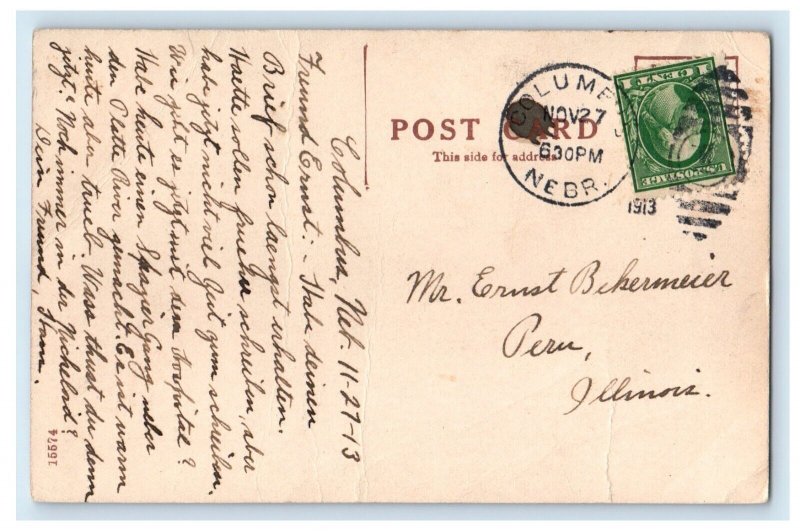 Columbus, Neb. 11-27-13
Freund Ernst:- Habe deinen
Brief schon laengst erhalten.
Haette sollen frueher schreiben, aber
habe jetzt nicht viel Zeit zum schreiben.
Wie geht es jetzt mit dem Hospital?
Habe heute einen Spazier Gang ueber
den Platte River gemacht. Es ist warm
heute aber trueb. Wass thust du denn
jetzt? Noch immer in der
Dein Freund,
15674
POST CARD
This side for address
COLUMB
NOV 27
630 PM
NEBR.
1913
1 CENT 1
U.S. POSTAGE
Mr. Ernst Bekermeier
Peru,
Illinois.